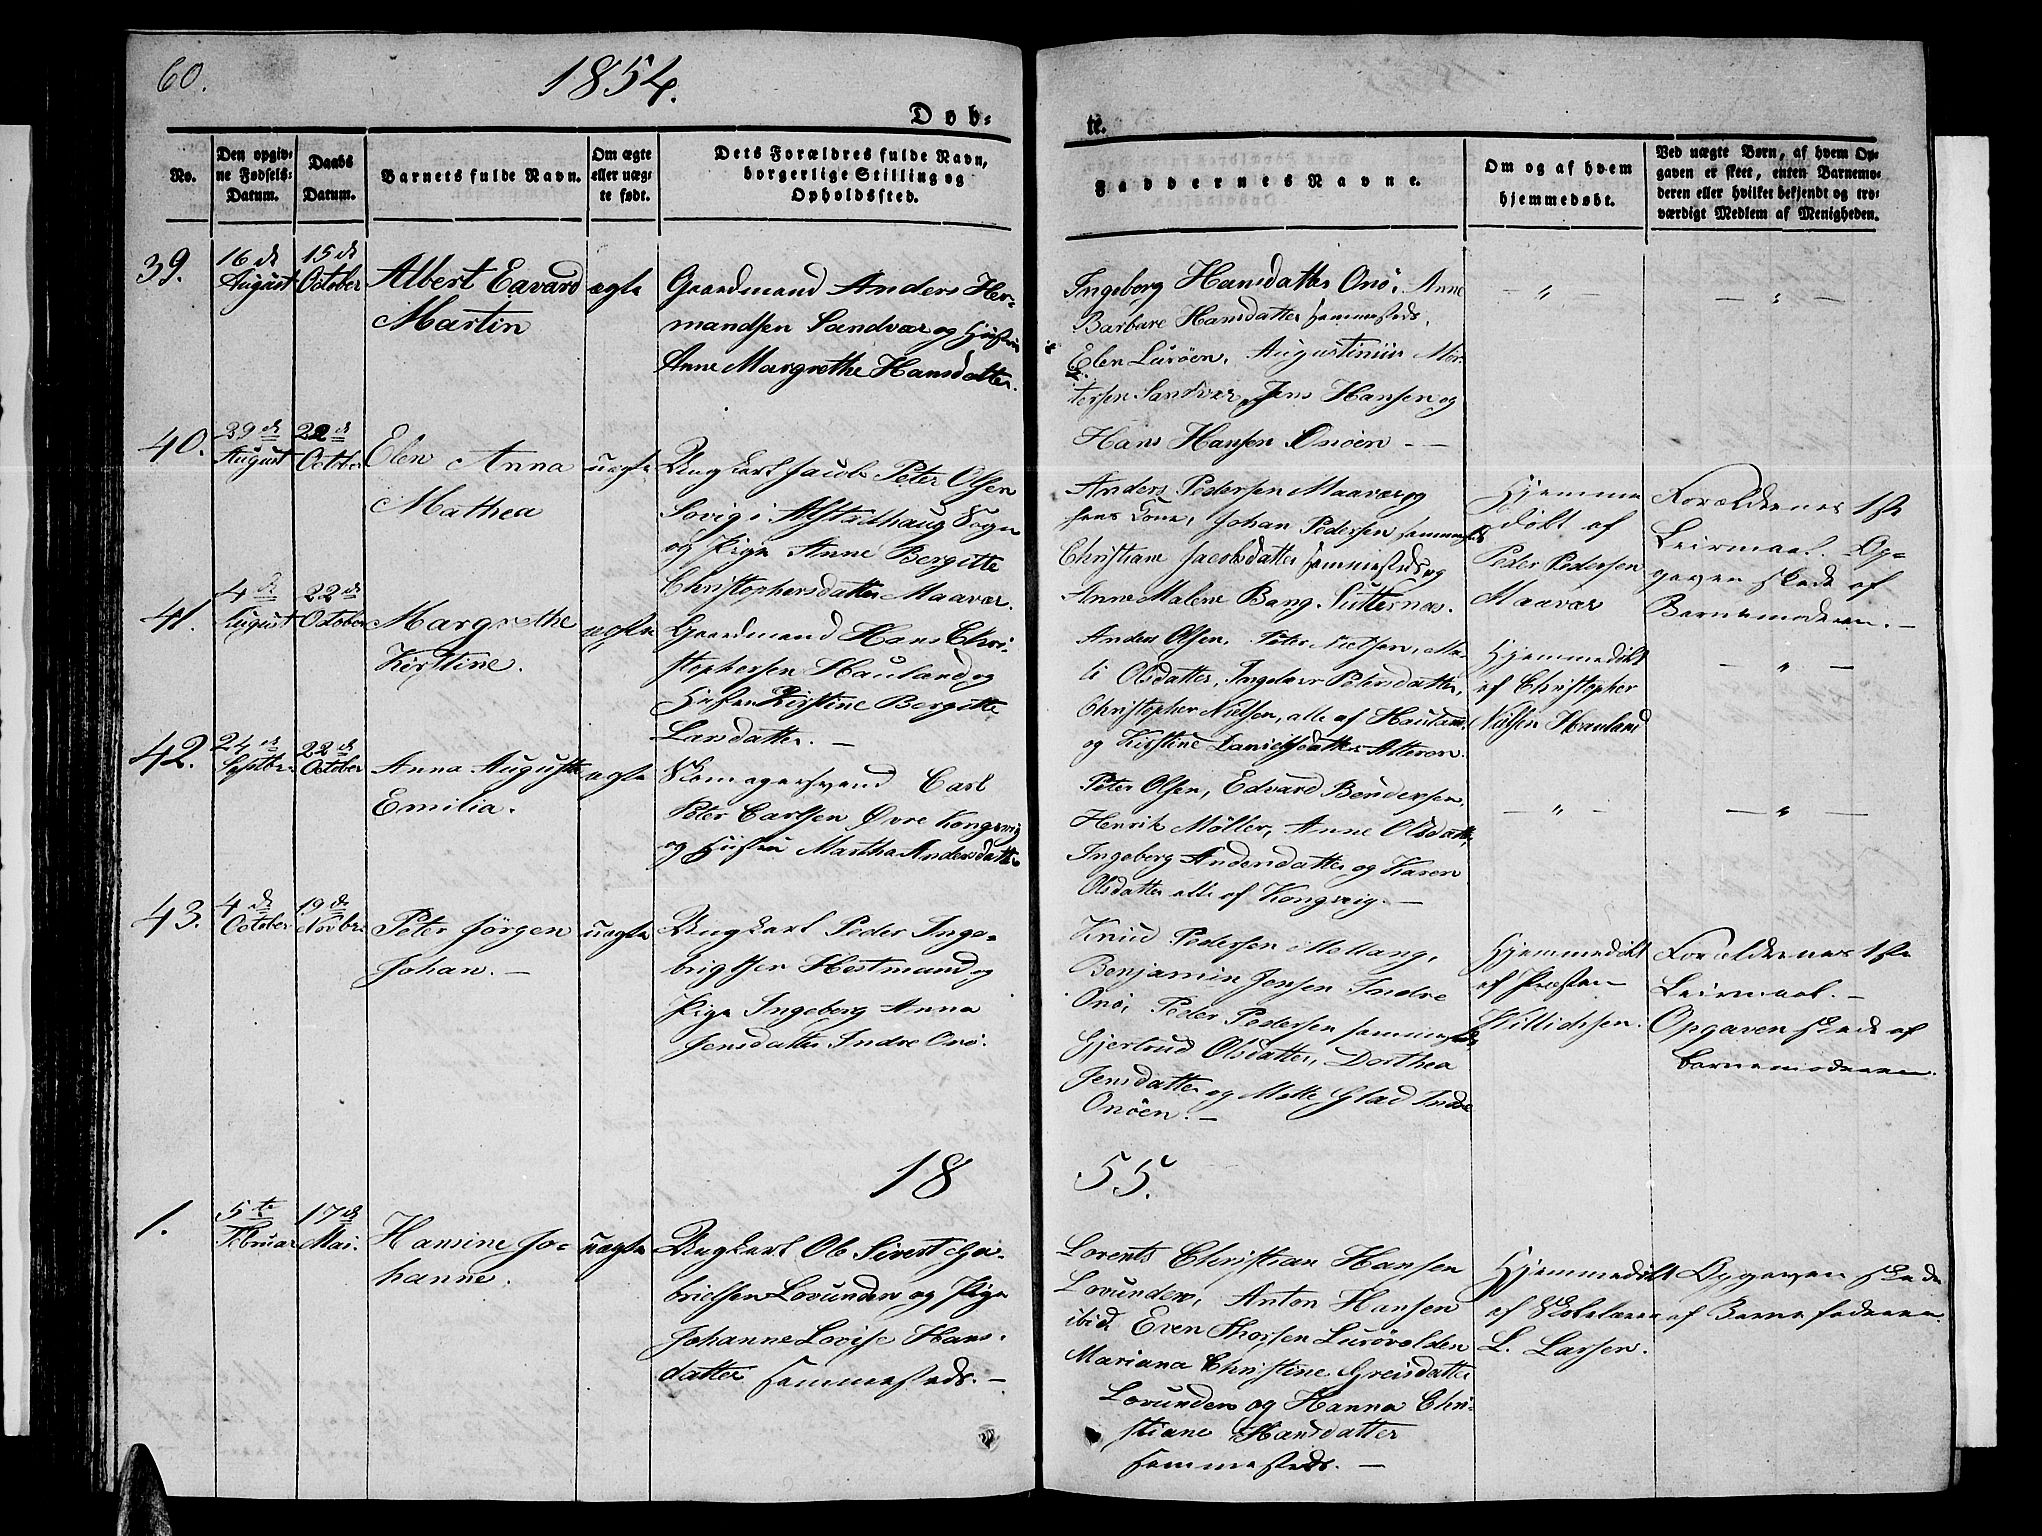 60.
1854.
Døb-
te.
No.
Den opgiv-
ne Fødsels-
Datum.
Daabs
Datum.
Barnets fulde Navn.
Om ægte
eller uæg-
te født.
Dets Forældres fulde Navn,
borgerlige Stilling og
Opholdssted.
Faddernes Navne.
Om og af hvem
hjemmedøbt.
Ved uægte Børn, af hvem Op-
gaven er skeet, enten Barnemo-
deren eller hvilket bekjendt og tro-
værdigt Medlem af Menigheden.
39.
16de
August
15de
October
Albert Eavard
Martin
ægte
Gaardmand Anders Her-
mandsen Sandvær og Hustru
Anne Margrethe Hansdatter.
Ingeborg Hansdatter Onø, Anne
Barbare Hansdatter sammesteds,
Elen Lurøen, Augustinius Mor-
tersen Sandvær, Jens Hansen og
Hans Hansen Onøen -
— " —
— " —
40.
29de
August
22de
October
Elen Anna
Mathea
uægte
Ungkarl Jacob Peter Olsen
Sovig i Alstadhaug Sogn
og Pige Anne Bergitte
Christophersdatter Maavær.
Anders Pedersen Maavær og
hans Kone, Johan Pedersen sammesteds
Christiane Jacobsdatter sammesteds og
Anne Malene Bang.
Hjemme
døbt af
Peder Pedersen
Maavær
Forældrenes 1ste
Leirmaal. Op-
gaven skede af
Barnemoderen. -
41.
4de
August
22de
October
Margrethe
Kirstine.
ægte
Gaardmand Hans Chri-
stophersen Hauland og
Hustru Kirstine Bergitte
Larsdatter. -
Anders Olsen, Peter Nielsen, Ma-
li Olsdatter, Ingeborg Petersdatter,
Christopher Nielsen, alle af Hauland,
og Kirstine Danielsdatter Alteren.
Hjemmedøbt
af Christopher
Nielsen Hauland
— " —
42.
24de
Septbr.
22de
October
Anna Augusta
Emilia.
ægte
Skomagersvend Carl
Peter Carlsen Øvre Kongsvig
og Hustru Martha Andersdatter
Peter Olsen, Edvard Bendixsen,
Henrik Møller, Anne Olsdatter,
Ingeberg Andersdatter og Karen
Olsdatter alle af Kongsvig. -
— " —
— " —
43.
4de
October
19de
Novber
Peter Jørgen
Johan. -
uægte
Ungkarl Peder Inge-
brigtsen Hestmand og
Pige Ingeberg Anna
Jensdatter Indre Onø.
Knud Pedersen Mellang,
Benjamin Jensen Indre
Onø, Peder Pedersen sammesteds,
Gjertrud Olsdatter, Dorthea
Jensdatter og Mette Glad Indre
Onøen. -
Hjemmedøbt
af Præsten
Forældrenes 1ste
Leirmaal. -
Opgaven skede af
Barnemoderen.
18
55.
1.
5te
Februar
17de
Mai.
Hansine Jo-
hanne.
uægte
Ungkarl Ole Sivert Ga-
brielsen Lovunden og Pige
Johanne Lovise Hans-
datter sammesteds. -
Lorents Christian Hansen
Lovunden, Anton Hansen
ibid Even Thorsen Lurøvolden
Mariana Christine Greisdatter
Lovunden og Hanna Chri-
stiane Hansdatter
sammesteds. -
Hjemmedøbt
af Skolelærer
L. Larsen.
Opgaven skede
af Barnefaderen.